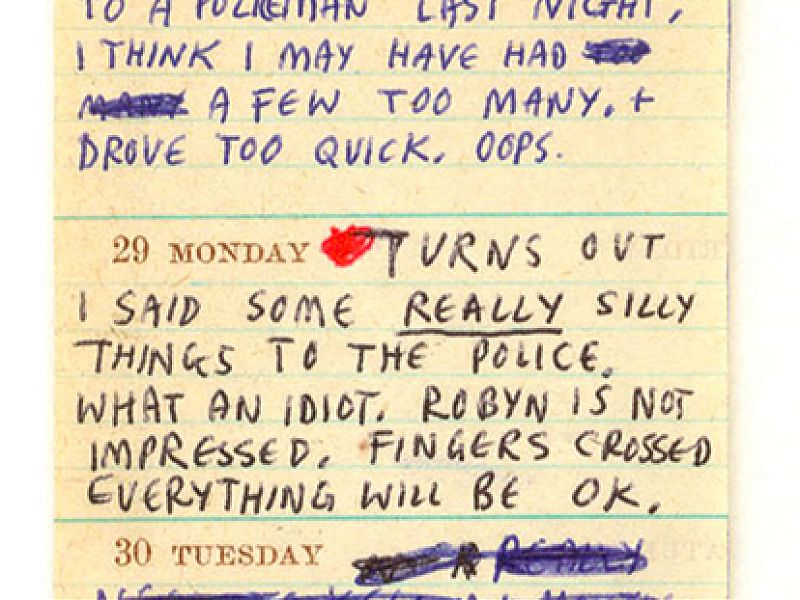 TO A POLICEMAN LAST NIGHT,
I THINK I MAY HAVE HAD
A FEW TOO MANY. +
DROVE TOO QUICK. OOPS.
29 MONDAY TURNS OUT
I SAID SOME REALLY SILLY
THINGS TO THE POLICE.
WHAT AN IDIOT. ROBYN IS NOT
IMPRESSED. FINGERS CROSSED
EVERYTHING WILL BE OK.
30 TUESDAY REALLY